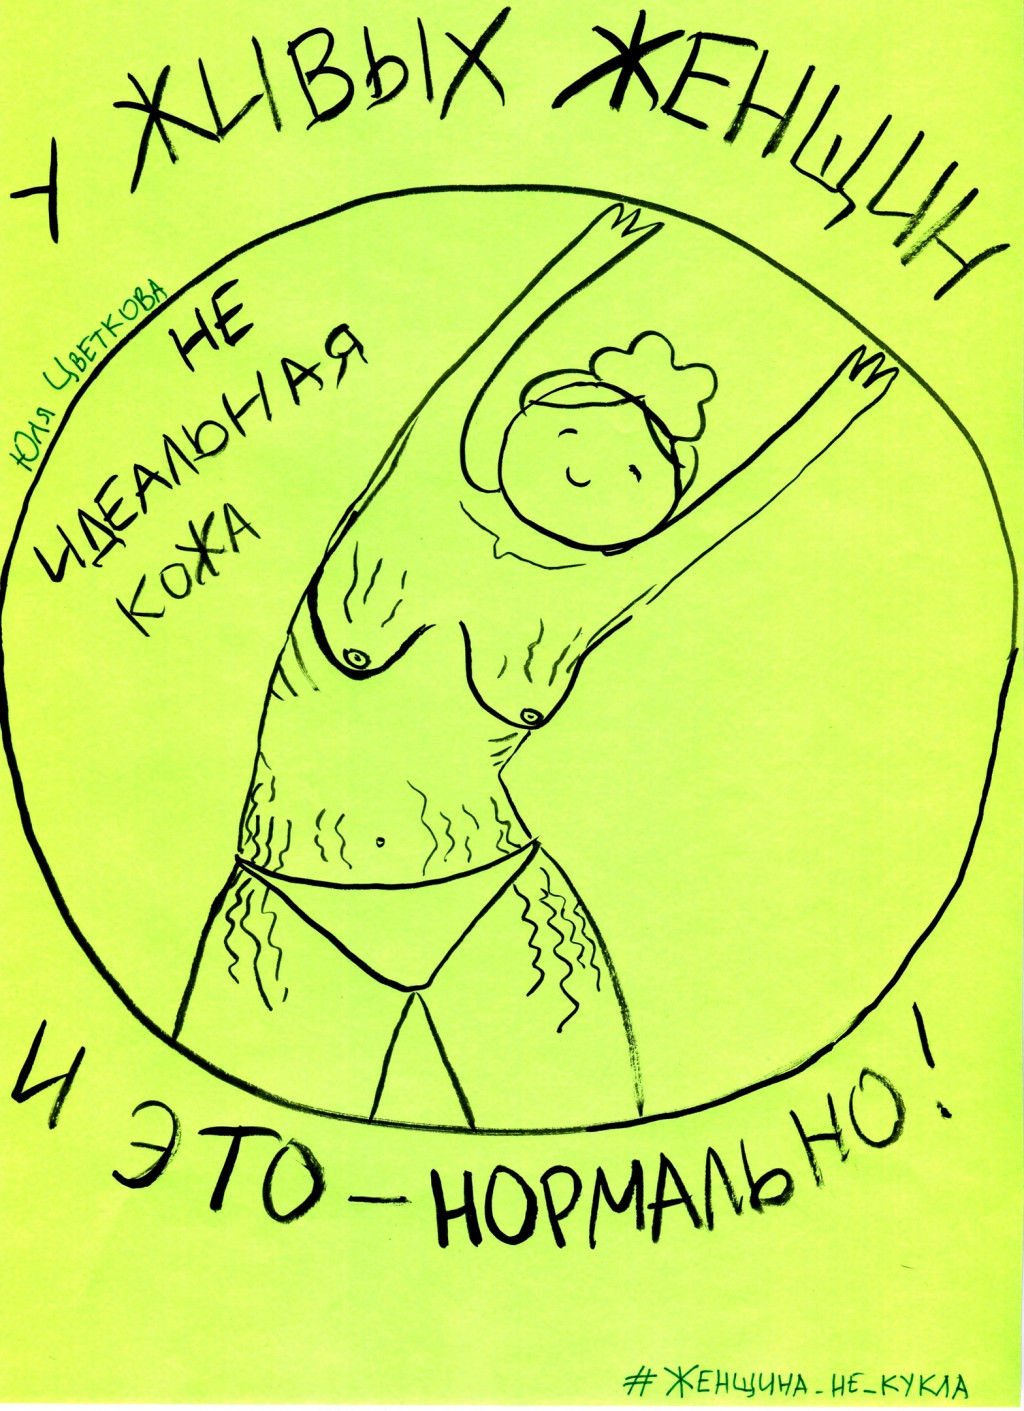 У ЖИВЫХ ЖЕНЩИН
Юля Цветкова
НЕ
ИДЕАЛЬНАЯ
КОЖА
И ЭТО - НОРМАЛЬНО!
#ЖЕНЩИНА_НЕ_КУКЛА